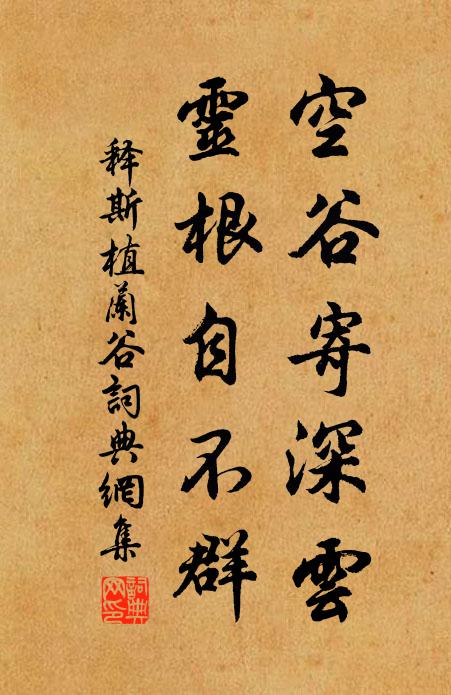 空谷寄深雲
靈根自不群
释斯植蘭谷詞典網集
詞典网印